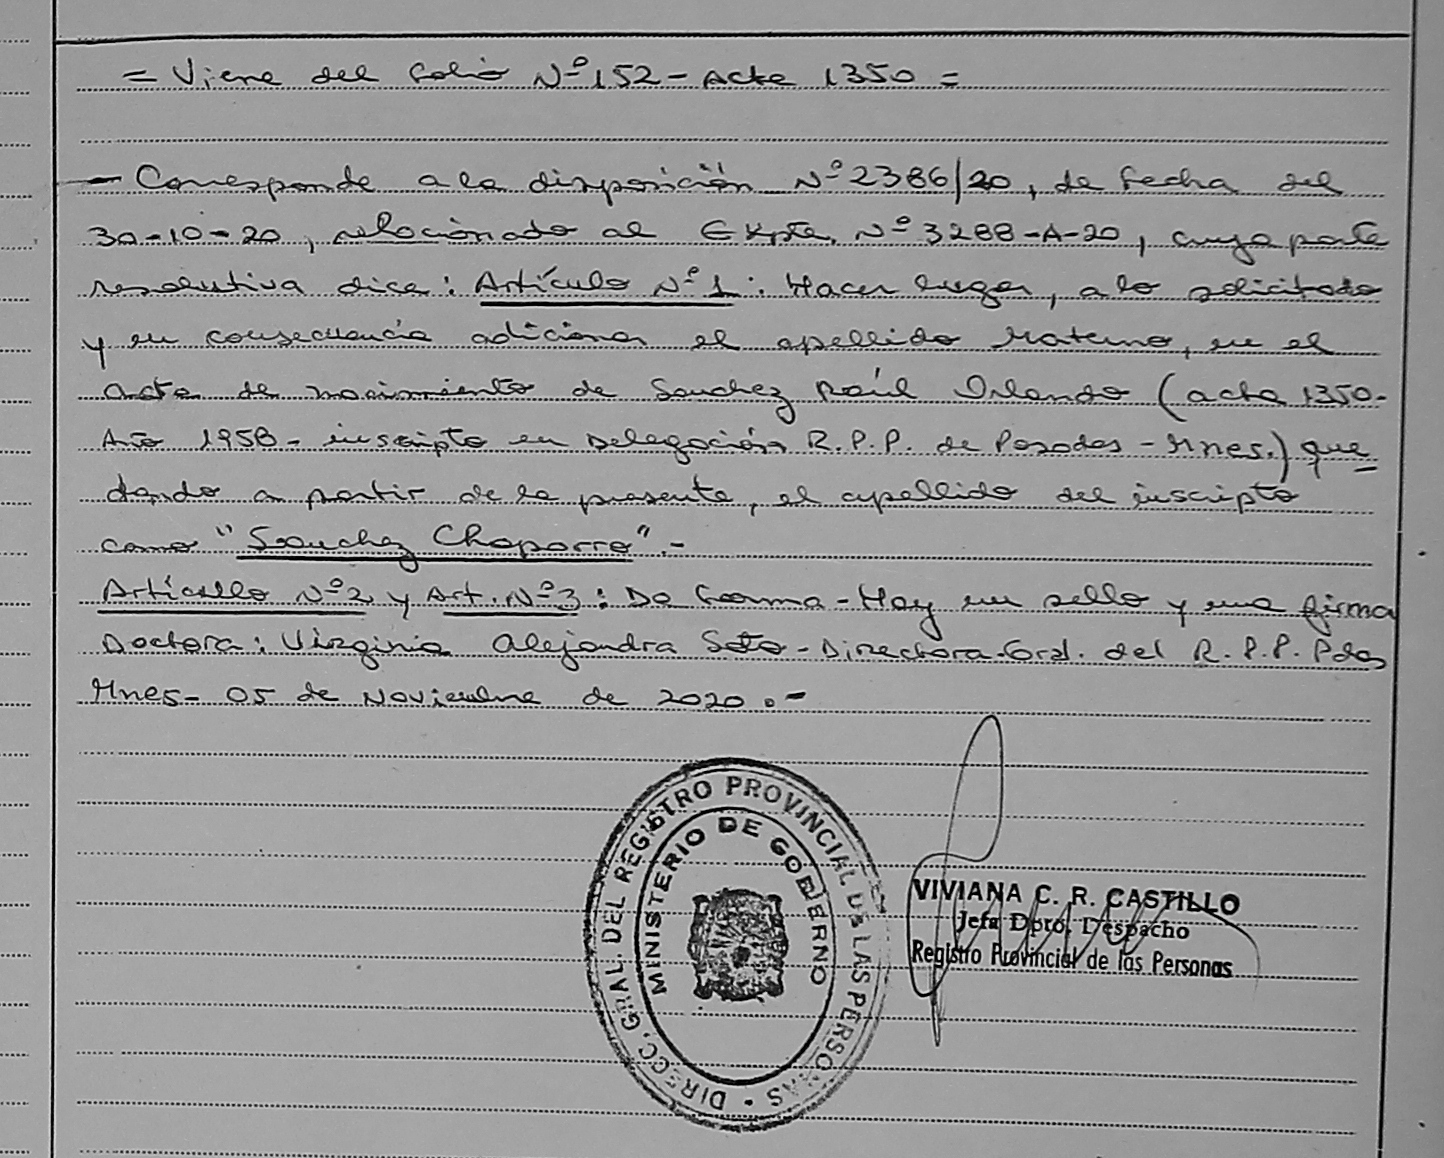 = Viene del folio Nº 152 - Acta 1350 =
- Corresponde a la disposición Nº 2386/20, de fecha del
30-10-20, relacionado al Expte. Nº 3288-A-20, cuya parte
resolutiva dice: Artículo Nº 1: Hacer lugar, a lo solicitado
y en consecuencia adicionar el apellido Materno, en el
acta de nacimiento de Sanchez Raúl Orlando (acta 1350-
Año 1958 - inscripto en Delegación R.P.P. de Posadas - Mnes.) que=
dando a partir de la presente, el apellido del inscripto
como "Sanchez Chaparro".-
Artículo Nº 2 y Art. Nº 3: De forma - Hay un sello y una firma
Doctora: Virginia Alejandra Soto - Directora Gral. del R.P.P. Pdas
Mnes - 05 de Noviembre de 2020.-
DIRECC. GRAL. DEL REGISTRO PROVINCIAL DE LAS PERSONAS
MINISTERIO DE GOBIERNO
VIVIANA C. R. CASTILLO
Jefa Dpto. Despacho
Registro Provincial de las Personas